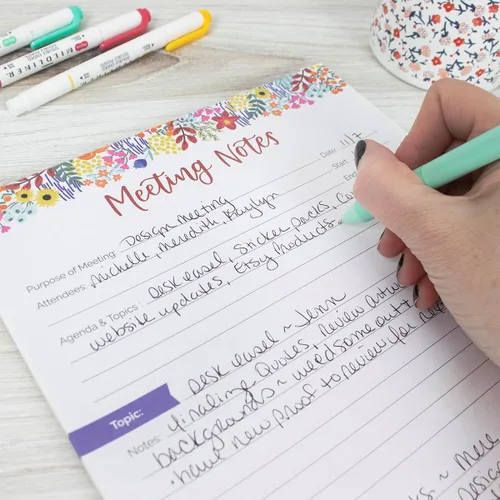 MILDLINER
Meeting Notes
Date: 11/7
Start:
End:
Purpose of Meeting: Design meeting
Attendees: Michelle, Meredith, Kaylyn
Agenda & Topics: Desk easel, Sticker packs, Co
website updates, Etsy Products
Topic: Desk easel ~ Jenn
Notes: finalizing quotes, review actual
backgrounds ~ need some
· have new proof to review for
~ Mere